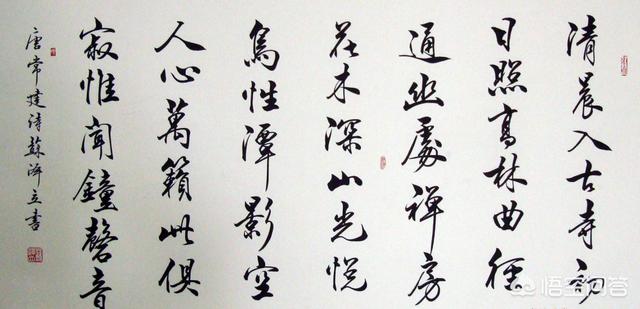 清晨入古寺初
日照高林曲徑
通幽處禪房
花木深山光悅
鳥性潭影空
人心萬籟此俱
寂惟聞鐘磬音
唐常建詩蘇立書
悟空问答